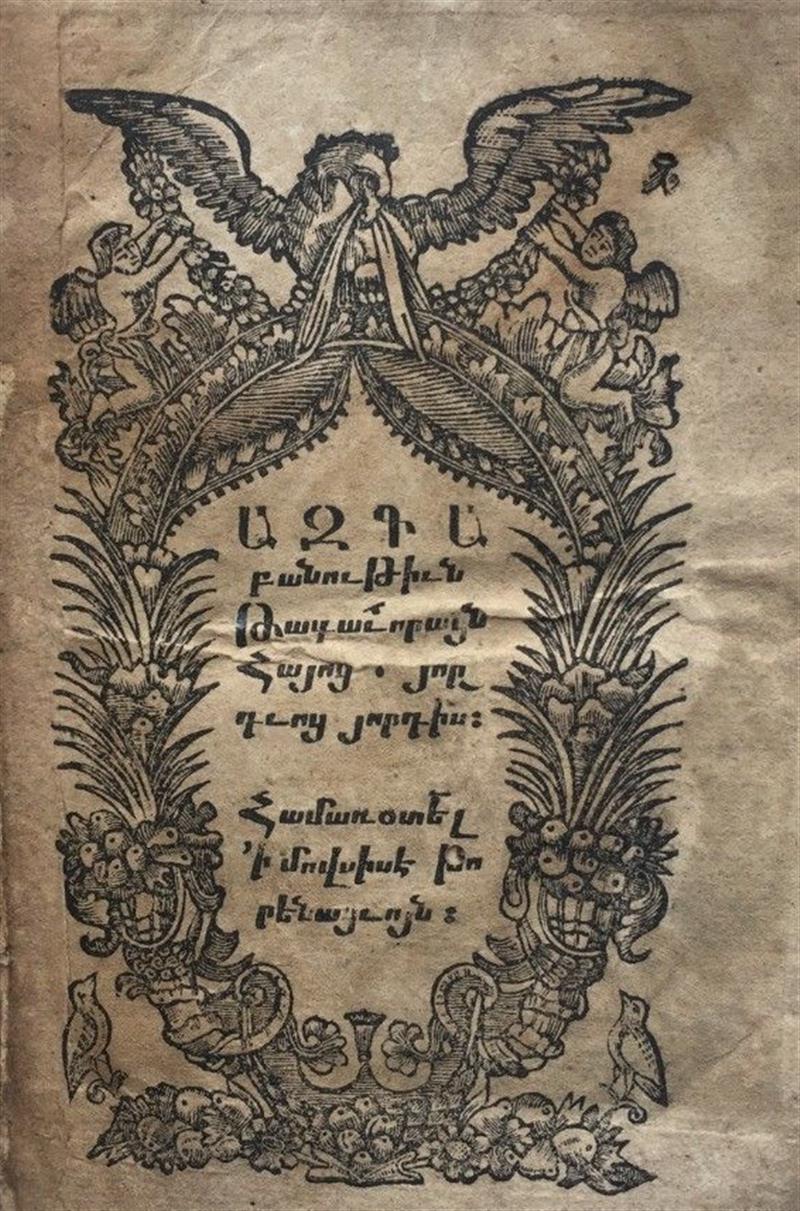 ԱԶԳԱ
բանութիւն
Թագաւորացն
Հայոց . յոր
դւոց յորդիս։
Համառօտեալ
՚ի մովսիսէ խո
րենացւոյն ։